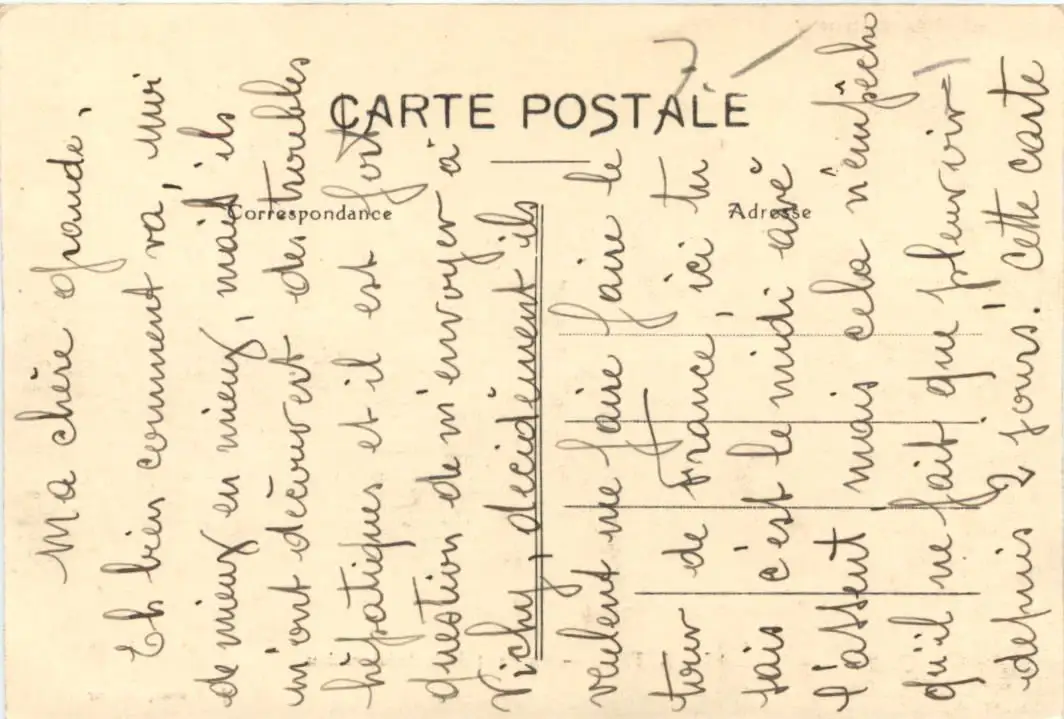 CARTE POSTALE
Correspondance
Adresse
Ma chère grande,
Eh bien comment va, moi
de mieux en mieux, mais ils
m'ont découvert des troubles
hépatiques et il est fort
question de m'envoyer à
Vichy, décidément ils
veulent me faire faire le
tour de France, ici tu
sais c'est le midi avê
l'assent, mais cela n'empêche
qu'il ne fait que pleuvoir
depuis 2 jours. Cette carte